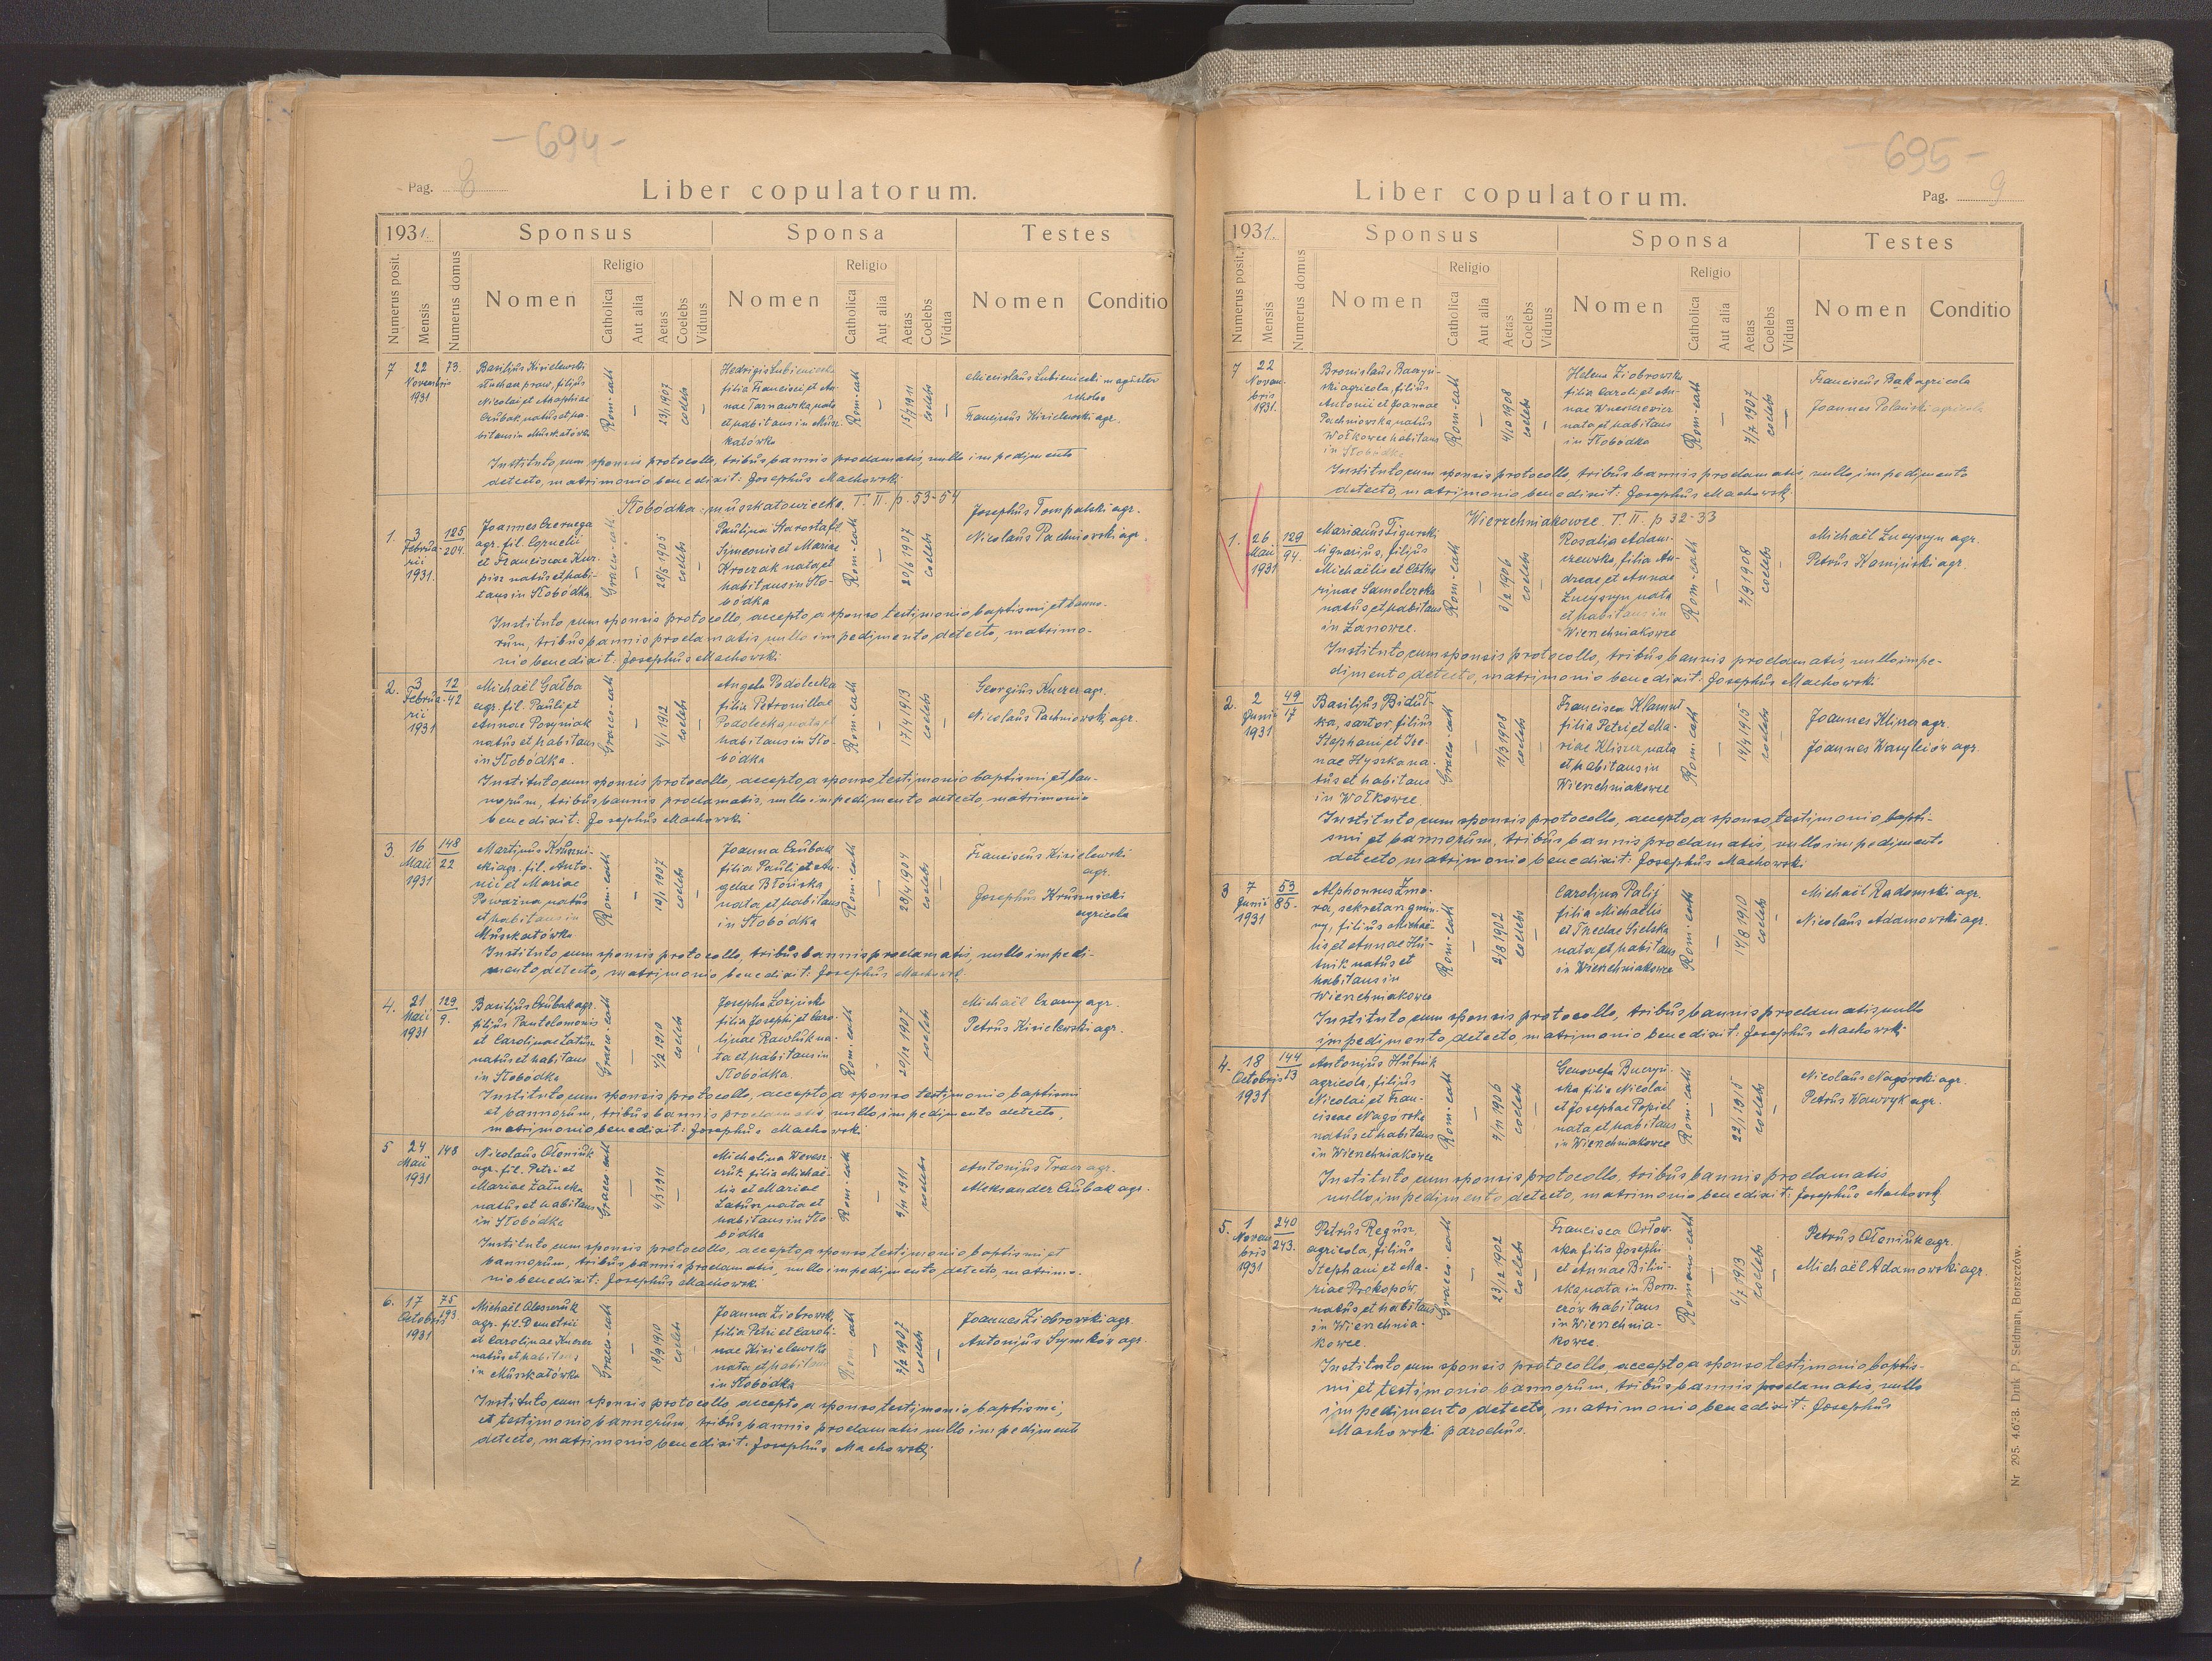 - 694 -
Pag. 8
Liber copulatorum.
1931.
Sponsus
Sponsa
Testes
Numerus posit.
Mensis
Numerus domus
Nomen
Religio
Catholica
Aut alia
Aetas
Coelebs
Viduus
Nomen
Religio
Catholica
Aut alia
Aetas
Coelebs
Vidua
Nomen
Conditio
7
22
Novembris
1931
73.
Basilius Kisielewski
filius
Nicolai et Agaphiae
Czubak, natus et ha-
bitans in Muszkatówka
Rom-cath
—
29/1 1907
coelebs
—
Hedvigis Lubieniecka
filia Francisci et An-
nae Tarnawska, nata
et habitans in Musz-
katówka
Rom-cath
—
15/7 1911
coelebs
—
Miecislaus Lubieniecki magister
schola
Franciscus Kisielewski agr.
Instituto cum sponsis protocollo, tribus bannis proclamatis, nullo impedimento
detecto, matrimonio benedixit: Josephus Machowski
Słobódka-muszkatowiecka. T. II p. 53-54
1.
3
Februa-
rii
1931.
125
204.
Joannes Czornega
agr. fil. Cornelii
et Franciscae Kur-
pisz natus et habi-
tans in Słobódka.
Graeco-cath
—
28/5 1905
coelebs
—
Paulina Starosta fil.
Symeonis et Mariae
Kroczak nata et
habitans in Sło-
bódka
Rom-cath
—
20/6 1907
coelebs
—
Josephus Tompalski agr.
Nicolaus Pachniowski agr.
Instituto cum sponsis protocollo, accepto a sponso testimonio baptismi et banno-
rum, tribus bannis proclamatis, nullo impedimento detecto, matrimo-
nio benedixit: Josephus Machowski
2.
3
Februa-
rii
1931
12
42
Michaël Gałba
agr. fil. Pauli et
Annae Posyniak
natus et habitans
in Słobódka.
Graeco-cath
—
4/1 1912
coelebs
—
Angela Podolecka
filia Petronillae
Podolecka, nata et
habitans in Sło-
bódka
Rom-cath
—
17/4 1913
coelebs
—
Georgius Knezer agr.
Nicolaus Pachniowski agr.
Instituto cum sponsis protocollo, accepto a sponso testimonio baptismi et ban-
norum, tribus bannis proclamatis, nullo impedimento detecto, matrimonio
benedixit: Josephus Machowski
3.
16
Maii
1931
148
22
Martinus Kruszni-
cki agr. fil. Anto-
nii et Mariae
Poważna, natus
et habitans in
Muszkatówka
Rom-cath
—
10/1 1907
coelebs
—
Joanna Czubak
filia Pauli et An-
gelae Błońska
nata et habitans
in Słobódka
Rom-cath
—
28/4 1904
coelebs
—
Franciscus Kisielewski
agr.
Josephus Krusznicki
agricola
Instituto cum sponsis protocollo, tribus bannis proclamatis, nullo impedi-
mento detecto, matrimonio benedixit: Josephus Machowski
4.
21
Maii
1931
129
9.
Basilius Czubak agr.
filius Pantelomonis
et Carolinae Łatusz
natus et habitans
in Słobódka
Graeco-cath
—
7/2 1910
coelebs
—
Josepha Łozińska
filia Josephi et Caro-
linae Rawluk na-
ta et habitans in
Słobódka.
Rom-cath
—
20/12 1907
coelebs
Michaël Czarny agr.
Petrus Kisielewski agr.
Instituto cum sponsis protocollo, accepto a sponso testimonio baptismi
et bannorum, tribus bannis proclamatis, nullo impedimento detecto,
matrimonio benedixit: Josephus Machowski
5
24
Maii
1931
148
Nicolaus Ołeniuk
agr. fil. Petri et
Mariae Załucka
natus et habitans
in Słobódka
Graeco-cath
—
4/3 1911
—
Michalina Wewer-
czuk filia Michaë-
lis et Mariae
Łatusz, nata et
habitans in Sło-
bódka
Rom-cath
—
9/11 1911
coelebs
Antonius Tracz agr.
Aleksander Czubak agr.
Instituto cum sponsis protocollo, accepto a sponso testimonio baptismi et
bannorum, tribus bannis proclamatis, nullo impedimento detecto, matrimo-
nio benedixit: Josephus Machowski
6.
17
Octobris
1931
75
193
Michaël Oleszczuk
agr. fil. Demetrii
et Carolinae Knezer
natus et habitans
in Muszkatówka
Graeco-cath
—
18/9 1910
coelebs
—
Joanna Ziobrowska
filia Petri et Caroli-
nae Kisielewska
nata et habitans
in Słobódka
Rom-cath
—
7/2 1907
coelebs
—
Joannes Ziobrowski agr.
Antonius Szymków agr.
Instituto cum sponsis protocollo, accepto a sponso testimonio baptismi,
et testimonio bannorum, tribus bannis proclamatis nullo impedimento
detecto, matrimonio benedixit: Josephus Machowski
- 695 -
Liber copulatorum.
Pag. 9
1931.
Sponsus
Sponsa
Testes
Numerus posit.
Mensis
Numerus domus
Nomen
Religio
Catholica
Aut alia
Aetas
Coelebs
Viduus
Nomen
Religio
Catholica
Aut alia
Aetas
Coelebs
Vidua
Nomen
Conditio
7
22
Novem-
bris
1931.
Bronislaus Baczyń-
ski agricola, filius
Antonii et Joannae
Pachniowska, natus
Wołkowce habitans
in Słobódka
Rom-cath
—
4/10 1908
coelebs
—
Helena Ziobrowska
filia Caroli et An-
nae
nata et habitans
in Słobódka
Rom-cath
—
7/7 1907
coelebs
—
Franciscus Bak agricola
Joannes Polański agricola
Instituto cum sponsis protocollo, tribus bannis proclamatis, nullo impedimento
detecto, matrimonio benedixit: Josephus Machowski
Wierzchniakowce. T. II. p 32-33
1.
26
Maii
1931
129
94.
Marianus Figurski
lignarius, filius
Michaëlis et Catha
rinae Samolerska
natus et habitans
in Łanowce.
Rom-cath
—
3/2 1906
coelebs
—
Rosalia Adam-
czewska, filia An-
dreae et Annae
Łucyszyn nata
et habitans in
Wierzchniakowce
Rom-cath
—
7/9 1908
coelebs
—
Michaël Łucyszyn agr.
Petrus Kamiński agr.
Instituto cum sponsis protocollo, tribus bannis proclamatis, nullo impe-
dimento detecto, matrimonio benedixit: Josephus Machowski
2.
2
Junii
1931
49
17
Basilius Biduł-
ka, sartor filius
Stephani et Ire-
nae Hyszka na-
tus et habitans
in Wołkowce.
Graeco-cath
—
11/3 1908
coelebs
—
Francisca Klamut
filia Petri et Ma-
riae Kliszcz, nata
et habitans in
Wierzchniakowce
Rom-cath
—
14/4 1915
coelebs
—
Joannes Kliszcz agr.
Joannes Wasylciów agr.
Instituto cum sponsis protocollo, accepto a sponso testimonio bapti-
smi et bannorum, tribus bannis proclamatis, nullo impedimento
detecto matrimonio benedixit: Josephus Machowski
3
7
Junii
1931
53
85.
Alphonsus Żmo-
ra, sekretarz gmin-
ny, filius Michaë-
lis et Annae Hu-
tnik natus et
habitans in
Wierzchniakowce
Rom-cath
—
2/8 1902
coelebs
—
Carolina Palij
filia Michaëlis
et Theclae Sielska
nata et habitans
in Wierzchniakowce
Rom-cath
—
14/8 1910
coelebs
—
Michaël Radomski agr.
Nicolaus Adamowski agr.
Instituto cum sponsis protocollo, tribus bannis proclamatis, nullo
impedimento detecto, matrimonio benedixit: Josephus Machowski
4.
18
Octobris
1931
144
13
Antonius Hutnik
agricola, filius
Nicolai et Fran-
ciscae Nagórska
natus et habitans
in Wierzchniakowce
Rom-cath
—
7/11 1906
coelebs
—
Genovefa Buczyń-
ska filia Nicolai
et Josephae Popiel
nata et habitans
in Wierzchniakowce
Rom-cath
—
22/1 1915
coelebs
—
Nicolaus Nagórski agr.
Petrus Wawryk agr.
Instituto cum sponsis protocollo, tribus bannis proclamatis
nullo impedimento detecto, matrimonio benedixit: Josephus Machowski
5.
1
Novem
bris
1931
240
243.
Petrus Regusz,
agricola, filius
Stephani et Ma-
riae Prokopów
natus et habitans
in Wierzchnia-
kowce.
Graeco-cath
—
23/12 1902
coelebs
—
Francisca Orłow-
ska filia Josephi
et Annae Biliń-
ska, nata in Borsz-
czów habitans
in Wierzchnia-
kowce.
Romano-cath
—
6/7 1913
coelebs
—
Petrus Ołeniuk agr.
Michaël Adamowski agr.
Instituto cum sponsis protocollo, accepto a sponso testimonio baptis-
mi et testimonio bannorum, tribus bannis proclamatis, nullo
impedimento detecto, matrimonio benedixit: Josephus
Machowski parochus.
Nr 295. 4.6?8. Druk P. Seidman, Borszczów.